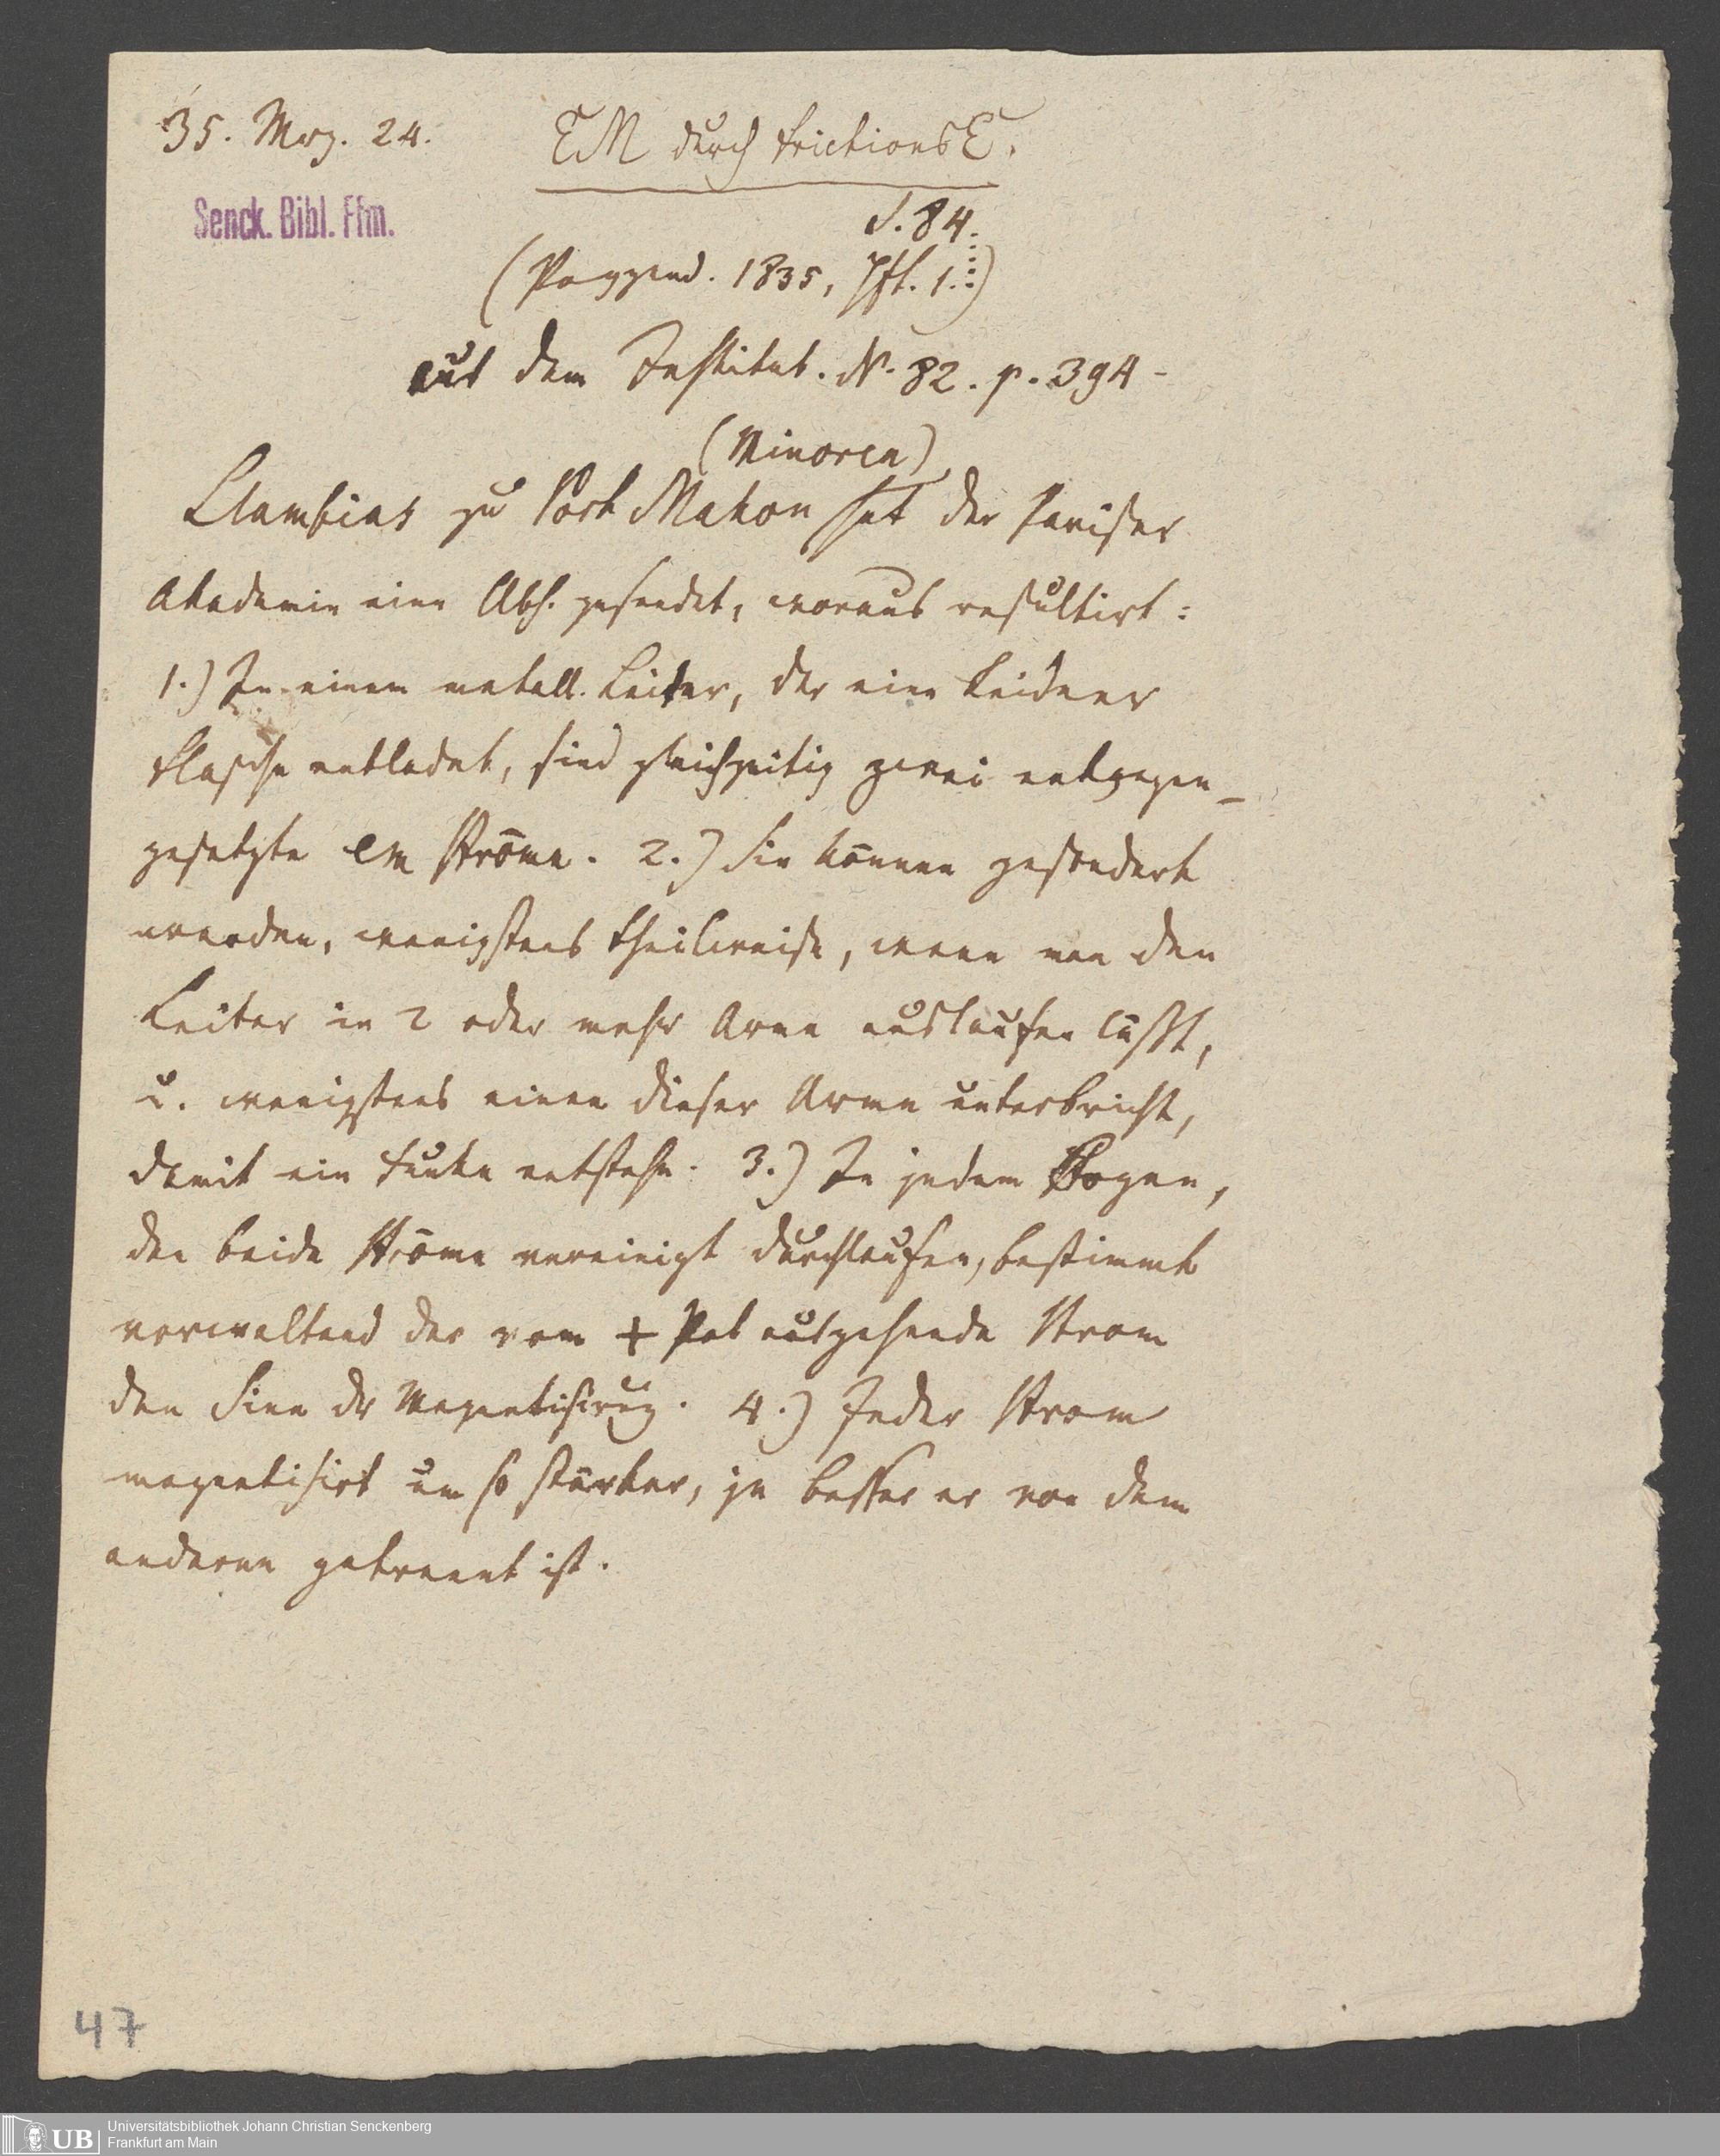 35. Mrz. 24.
EM durch FrictionsE.
Senck. Bibl. Ffm.
S. 84.
(Poggend. 1835, Hft. 1.)
aus dem Institut. N. 82. p. 394 -
(Minorca)
Llambias zu Port Mahon hat der Pariser
Akademie eine Abh. gesendet, woraus resultirt:
1.) In einem metall. Leiter, der eine Leidner
Flasche entladet, sind gleichzeitig zwei entgegen-
gesetzte em Ströme. 2.) Sie können gesondert
werden, wenigstens theilweise, wenn man den
Leiter in 2 oder mehr Arme auslaufen lässt,
u. wenigstens einen dieser Arme unterbricht,
damit ein Funke entstehe. 3.) In jedem Bogen,
den beide Ströme vereinigt durchlaufen, bestimmt
vorwaltend der vom + Pol ausgehende Strom
den Sinn dr Magnetisirug. 4.) Jeder Strom
magnetisirt um so stärker, je besser er von dem
anderen getrennt ist.
47
UB
Universitätsbibliothek Johann Christian Senckenberg
Frankfurt am Main